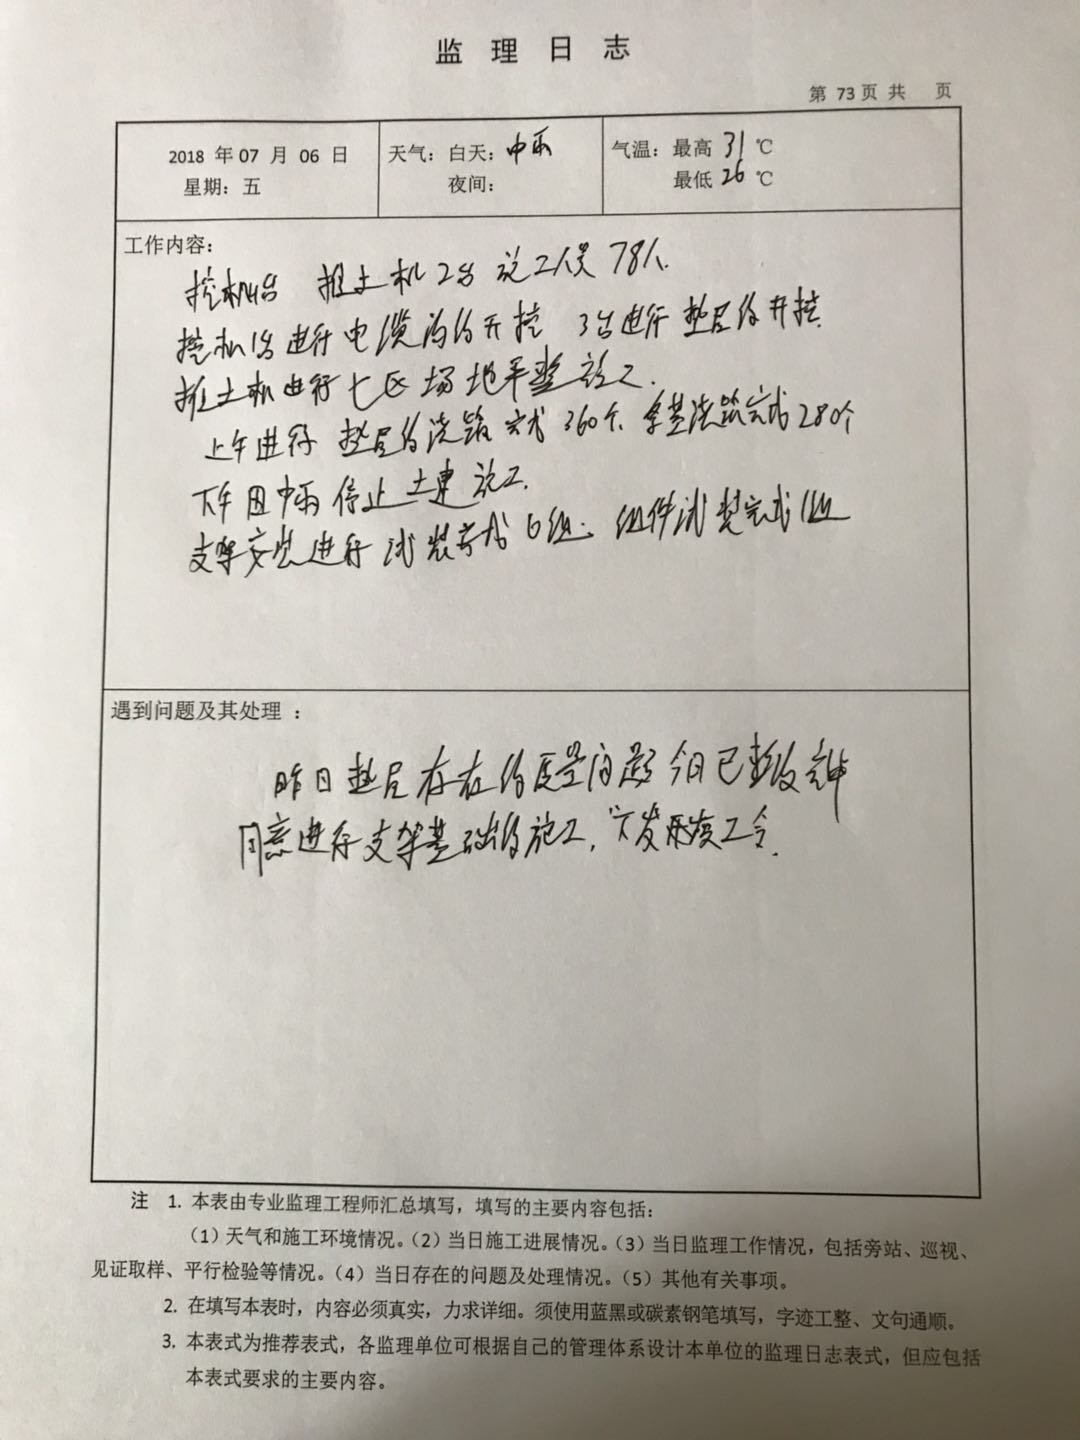 监理日志
第 73页 共 页
2018 年 07 月 06 日
星期：五
天气：白天：中雨
夜间：
气温：最高 31 ℃
最低 26 ℃
工作内容：
挖机4台 推土机2台 施工人员78人.
挖机1台进行电缆沟的开挖 3台进行垫层的开挖.
推土机进行七区场地平整施工.
上午进行垫层的浇筑完成360个. 基浇筑完成280个
下午因中雨停止土建施工.
支架安装进行试装完成6组. 组件试装完成1组
遇到问题及其处理 ：
昨日垫层存在的质量问题今日已整改完毕
同意进行支架基础的施工, 下发 工令.
注 1. 本表由专业监理工程师汇总填写，填写的主要内容包括：
（1）天气和施工环境情况。（2）当日施工进展情况。（3）当日监理工作情况，包括旁站、巡视、
见证取样、平行检验等情况。（4）当日存在的问题及处理情况。（5）其他有关事项。
2. 在填写本表时，内容必须真实，力求详细。须使用蓝黑或碳素钢笔填写，字迹工整、文句通顺。
3. 本表式为推荐表式，各监理单位可根据自己的管理体系设计本单位的监理日志表式，但应包括
本表式要求的主要内容。